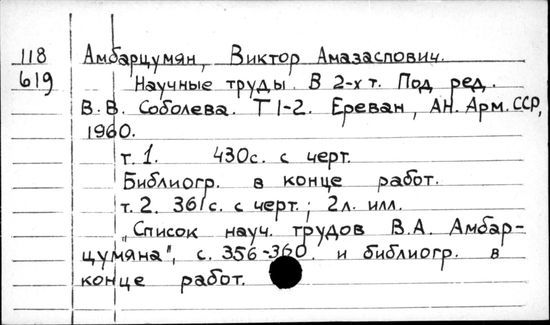 118 Амбарцумян, Виктор Амазаспович.
619 Научные труды. В 2-х т. Под ред.
В. В. Соболева. Т 1-2. Ереван, АН. Арм. ССР,
1960.
т. 1. 430с. с черт.
Библиогр. в конце работ.
т. 2. 361с. с черт.; 2л. илл.
"Список науч. трудов В.А. Амбар-
цумяна", с. 356-360. и библиогр. в
конце работ.